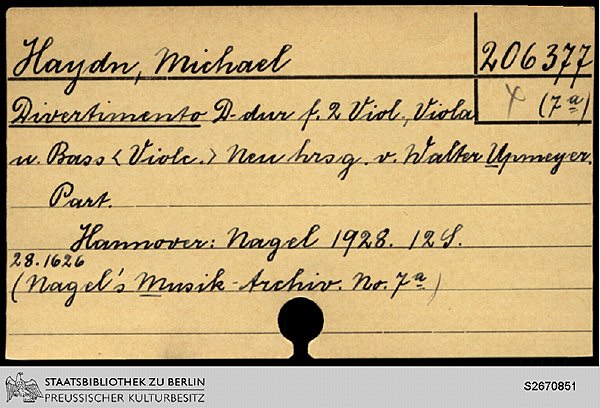 Haydn, Michael
206377
Divertimento D-dur f. 2 Viol., Viola
(7a)
u. Bass <Violc.> Neu hrsg. v. Walter Upmeyer.
Part.
Hannover: Nagel 1928. 12 S.
28.1626
(Nagel's Musik-Archiv. No. 7a)
STAATSBIBLIOTHEK ZU BERLIN
PREUSSISCHER KULTURBESITZ
S2670851